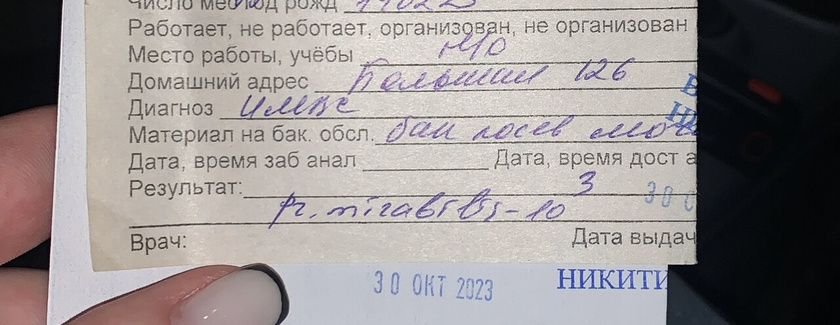 Число месяц год рожд
Работает, не работает, организован, не организован
Место работы, учёбы н/о
Домашний адрес Большая 126
Диагноз ИМВС
Материал на бак. обсл. бак посев моч
Дата, время заб анал Дата, время дост а
Результат: 30 О
pr. mirabilis-10 3
Врач: Дата выдач
30 ОКТ 2023 НИКИТИ